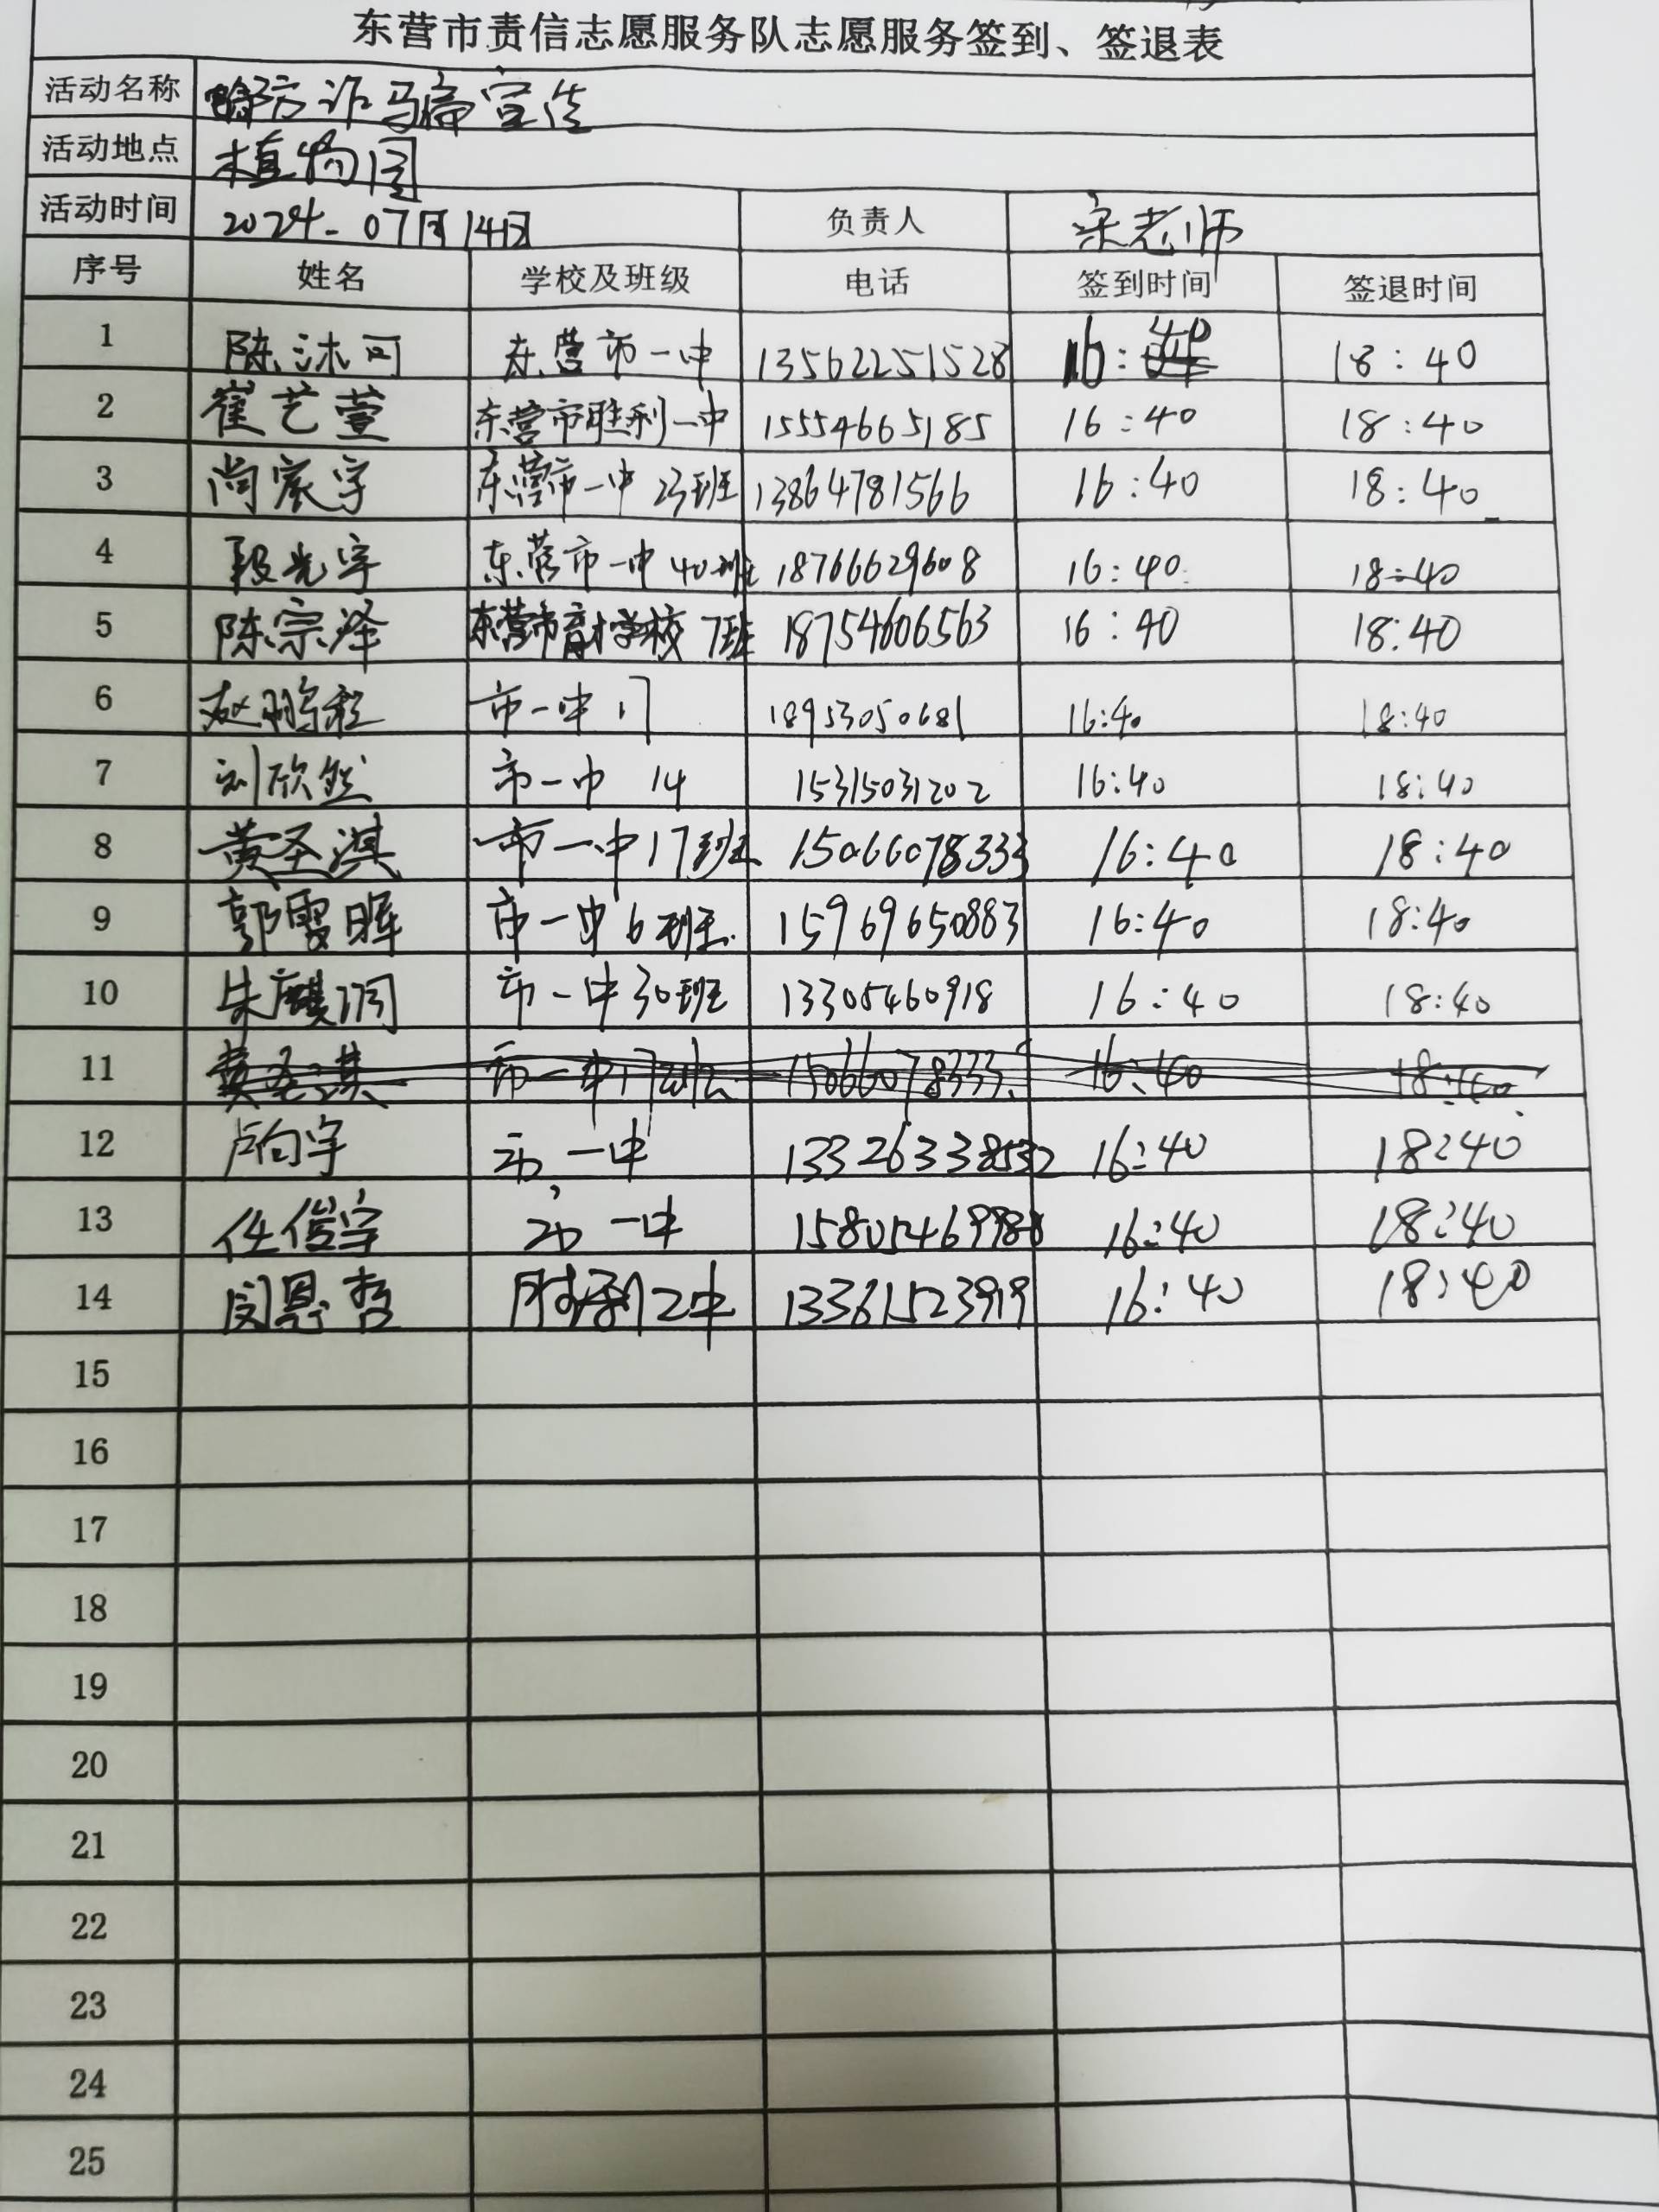 东营市责信志愿服务队志愿服务签到、签退表
活动名称 防诈骗宣传
活动地点 植物园
活动时间 2024-07月14日 负责人 宋老师
序号 姓名 学校及班级 电话 签到时间 签退时间
1 陈沐可 东营市一中 13562251528 16:40 18:40
2 崔艺萱 东营市胜利一中 15554665185 16:40 18:40
3 尚宸宇 东营市一中 23班 13864781566 16:40 18:40
4 段光宇 东营市一中 40班 18766629608 16:40 18:40
5 陈宗泽 东营市育才学校 7班 18754606563 16:40 18:40
6 赵鹏程 市一中 17 18953050681 16:40 18:40
7 刘欣然 市一中 14 15315031202 16:40 18:40
8 黄圣淇 市一中17班 15066078333 16:40 18:40
9 郭雲晖 市一中6班 15969650883 16:40 18:40
10 朱麒润 市一中30班 13305460918 16:40 18:40
11 黄圣淇 市一中17班 15066078333 16:40 18:40
12 卢向宇 市一中 16:40 18:40
13 任俊宇 市一中 16:40 18:40
14 闵恩哲 胜利2中 13361523919 16:40 18:40
15
16
17
18
19
20
21
22
23
24
25